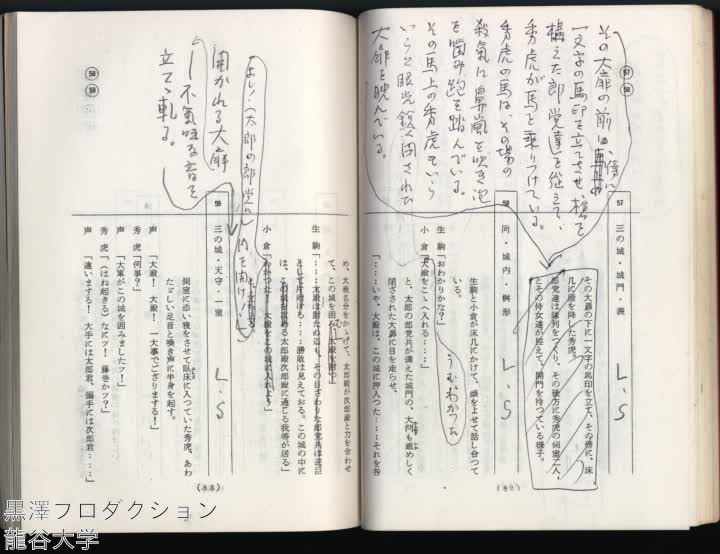 57
58
その大扉の前に、傍に
一文字の馬印を立てさせ、槍を
構えた郎党達を従えて、
秀虎が馬を乗りつけている。
秀虎の馬は、その場の
殺気に鼻嵐を吹き泡
を噛み跑を踏んでいる。
その馬上の秀虎もいら
いらと眼光鋭く閉された
大扉を睨んでいる。
57
三の城・城門・表
L.S
その大扉の下に一文字の馬印を立て、その傍に、床
几に腰を降した秀虎。
郎党達は隊列をつくり、その後方に秀虎の側室二人
とその侍女達が控えて、開門を待つている様子。
58
同・城内・桝形
L.S
生駒と小倉が床几にかけて、頭をよせて話し合つて
いる。
生駒「おわかりかな？」
うむわかつた
小倉「大殿をこゝへ入れる……」
と、太郎の郎党共が備えた城門の、大門も厳めしく
閉ざされた大扉に目を走らせ、
「……いや、大殿は、この城に押入つた……それを吾
(82)
58
59
よし！(太郎の郎党に)門を開け！
開かれる大扉
―不気味な音を
立てゝ軋る。
め、大義名分をかゝげて、太郎殿が次郎殿と力を合わせ
て、この城を囲み、大殿を討つ」
「……太殿は討たぬ迄も、その目ざわりな郎党共は逐日
として片附ける……勝敗は見えておる。この城の中に
は、この城を攻める太郎殿次郎殿に通じる我等が居る」
小倉「わかつた！この城に大殿を入れよう」
と、立ち上る
59
三の城・天守・一室
L.S
声「大殿！大殿！一大事でござりまする！」
側室に添い寝をさせて臥床に入つていた秀虎、あわ
たゞしい足音と喚き声に半身を起す。
秀虎「何事？」
声「大軍がこの城を囲みましたッ！」
秀虎「(はね起きる)なにッ！藤巻かツ？」
声「違いまする！大手には太郎君、搦手には次郎君……」
(83)
黒澤プロダクション
龍谷大学